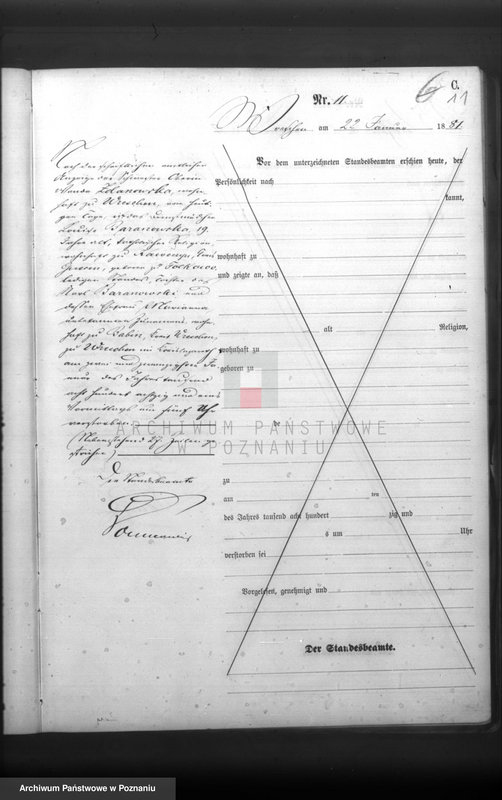 C.
6
11
Nr. 11
Wreschen am 22 Januar 1881
Vor dem unterzeichneten Standesbeamten erschien heute, der
Persönlichkeit nach
kannt,
wohnhaft zu
und zeigte an, daß
alt Religion,
wohnhaft zu
geboren zu
de
zu
am ten
des Jahres tausend acht hundert zig und
s um Uhr
verstorben sei
Vorgelesen, genehmigt und
Der Standesbeamte.
Nach der schriftlichen amtlichen
Anzeige der Schwester Oberin
Wanda Zdanowska, wohn-
haft zu Wreschen, von heuti-
gen Tage, ist das Dienstmädchen
Louise Baranowska, 19
Jahre alt, katholischer Religion,
wohnhaft zu
geboren zu
ledigen Standes, Tochter des
Karl Baranowski und
dessen Ehefrau Marianna
wohn-
haft zu Babin, Kreis Wreschen,
zu Wreschen im
am zwei und zwanzigsten Ja-
nuar des Jahres tausend
acht hundert achtzig und eins
Vormittags um fünf Uhr
verstorben.
Der Standesbeamte
ARCHIWUM PAŃSTWOWE
W POZNANIU
Archiwum Państwowe w Poznaniu